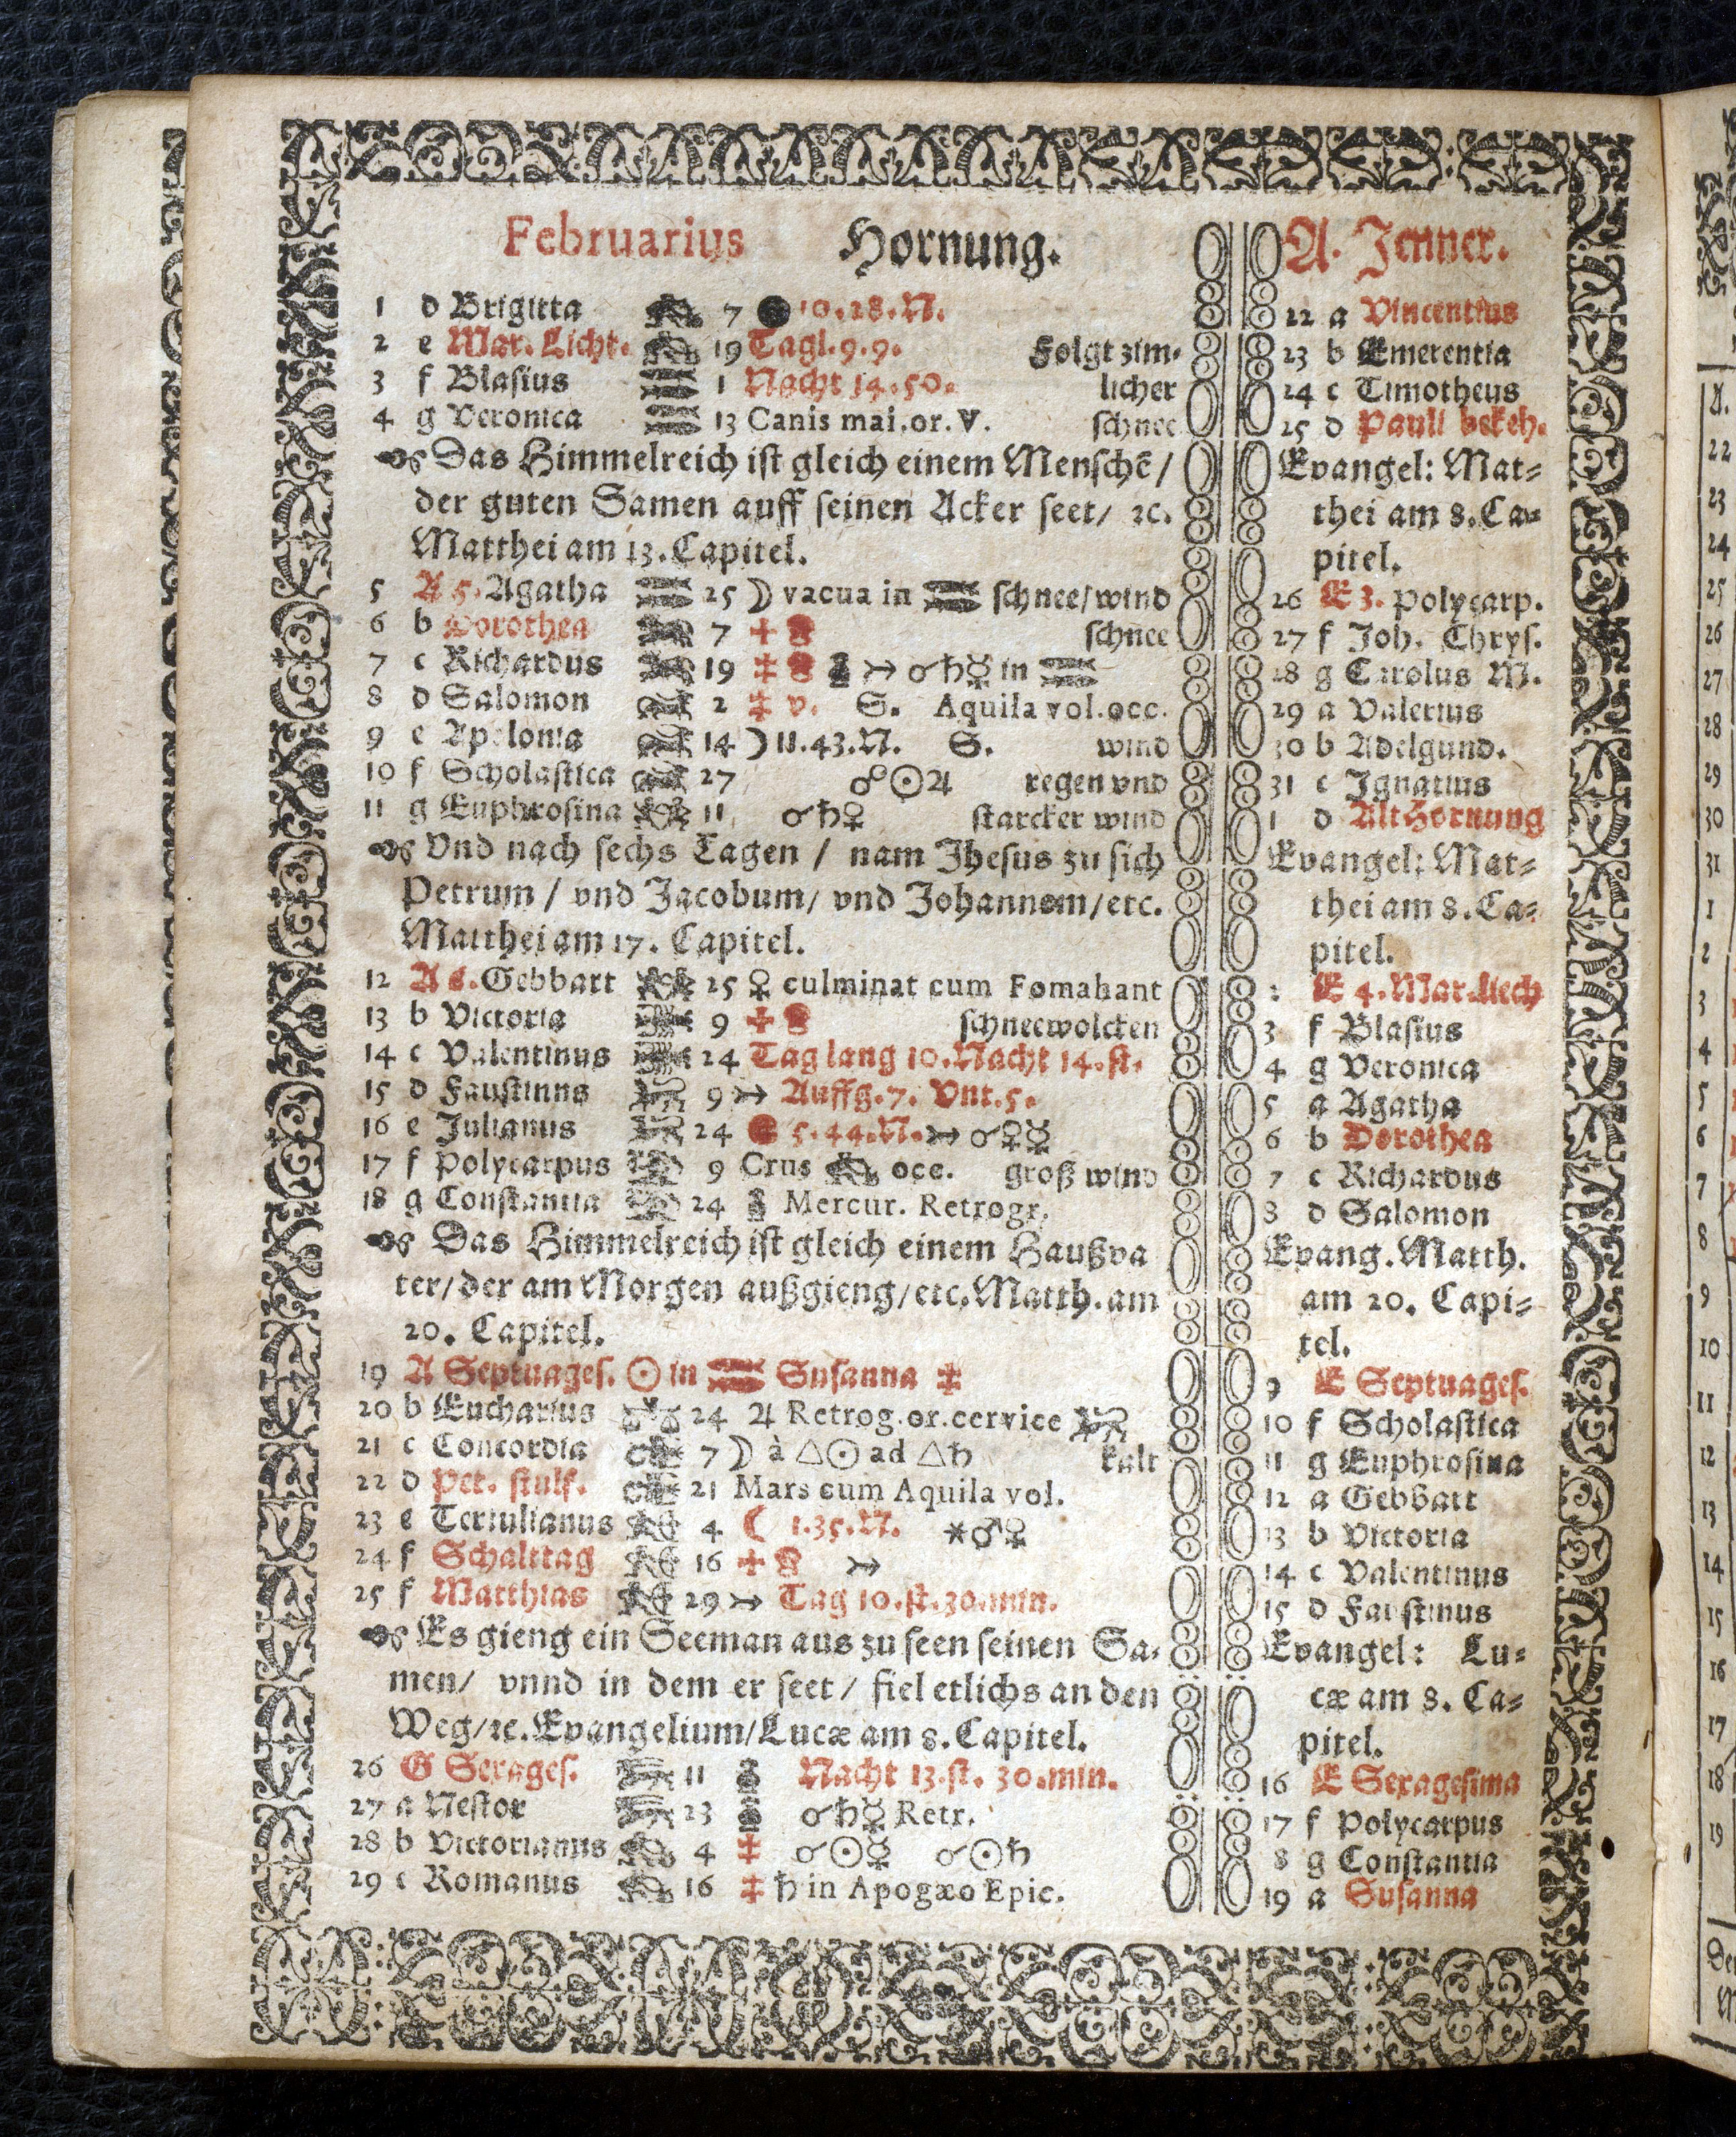 Februarius Hornung.
1 d Brigitta 7 10.28.N.
2 e Mar. Licht. 19 Tagl.9.9. Folgt zim-
3 f Blasius 1 Nacht 14.50. licher
4 g Veronica 13 Canis mai.or.V. schnee
Das Himmelreich ist gleich einem Menschē/
der guten Samen auff seinen Acker seet/ ꝛc.
Matthei am 13. Capitel.
5 A 5. Agatha 25 ☽ vacua in ♓ schnee/wind
6 b Dorothea 7 schnee
7 c Richardus 19 ☌♄☿ in ♓
8 d Salomon 2 ‡ v. S. Aquila vol.occ.
9 e Apolonia 14 ☽ 11.43.N. S. wind
10 f Scholastica 27 ☍☉♃ regen vnd
11 g Euphrosina 11 ☌♄♀ starcker wind
Vnd nach sechs Tagen / nam Jhesus zu sich
Petrum / vnd Jacobum/ vnd Johannem/etc.
Matthei am 17. Capitel.
12 A 6. Gebhart 25 ♀ culminat cum Fomahant
13 b Victoria 9 schneewolcken
14 c Valentinus 24 Tag lang 10. Nacht 14.st.
15 d Faustinns 9 Auffg.7. Vnt.5.
16 e Julianus 24 5.44.N. ☌♀☿
17 f Polycarpus 9 Crus occ. groß wind
18 g Constantia 24 Mercur. Retrogr.
Das Himmelreich ist gleich einem Haußva
ter/der am Morgen außgieng/etc. Matth. am
20. Capitel.
19 A Septuages. ☉ in ♓ Susanna ‡
20 b Eucharius 24 ♃ Retrog.or.cervice
21 c Concordia 7 ☽ à △☉ ad △♄ kalt
22 d Pet. stulf. 21 Mars cum Aquila vol.
23 e Tertulianus 4 ☾ 1.35.N. ⚹♂♀
24 f Schalttag 16
25 f Matthias 29 Tag 10.st.30.min.
Es gieng ein Seeman aus zu seen seinen Sa-
men/ vnnd in dem er seet / fiel etlichs an den
Weg/ꝛc. Evangelium/Lucæ am 8. Capitel.
26 G Sexages. 11 Nacht 13.st. 30.min.
27 a Nestor 23 ☌♄☿ Retr.
28 b Victorianus 4 ‡ ☌☉☿ ☌☉♄
29 c Romanus 16 ‡ ♄ in Apogæo Epic.
A. Jenner.
22 a Vincentius
23 b Emerentia
24 c Timotheus
25 d Pauli bekeh.
Evangel: Mat-
thei am 8. Ca-
pitel.
26 E 3. Polycarp.
27 f Joh. Chrys.
28 g Carolus M.
29 a Valerius
30 b Adelgund.
31 c Ignatius
1 d Alt Hornung
Evangel: Mat-
thei am 8. Ca-
pitel.
2 E 4. Mar. Liech
3 f Blasius
4 g Veronica
5 a Agatha
6 b Dorothea
7 c Richardus
8 d Salomon
Evang. Matth.
am 20. Capi-
tel.
9 E Septuages.
10 f Scholastica
11 g Euphrosina
12 a Gebhart
13 b Victoria
14 c Valentinus
15 d Faustinus
Evangel: Lu-
cæ am 8. Ca-
pitel.
16 E Sexagesima
17 f Polycarpus
8 g Constantia
19 a Susanna
A.
22
23
24
25
26
27
28
29
30
31
1
2
3
4
5
6
7
8
9
10
11
12
13
14
15
16
17
18
19